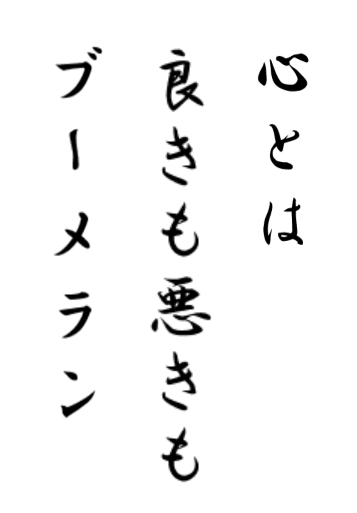 心とは
良きも悪きも
ブーメラン